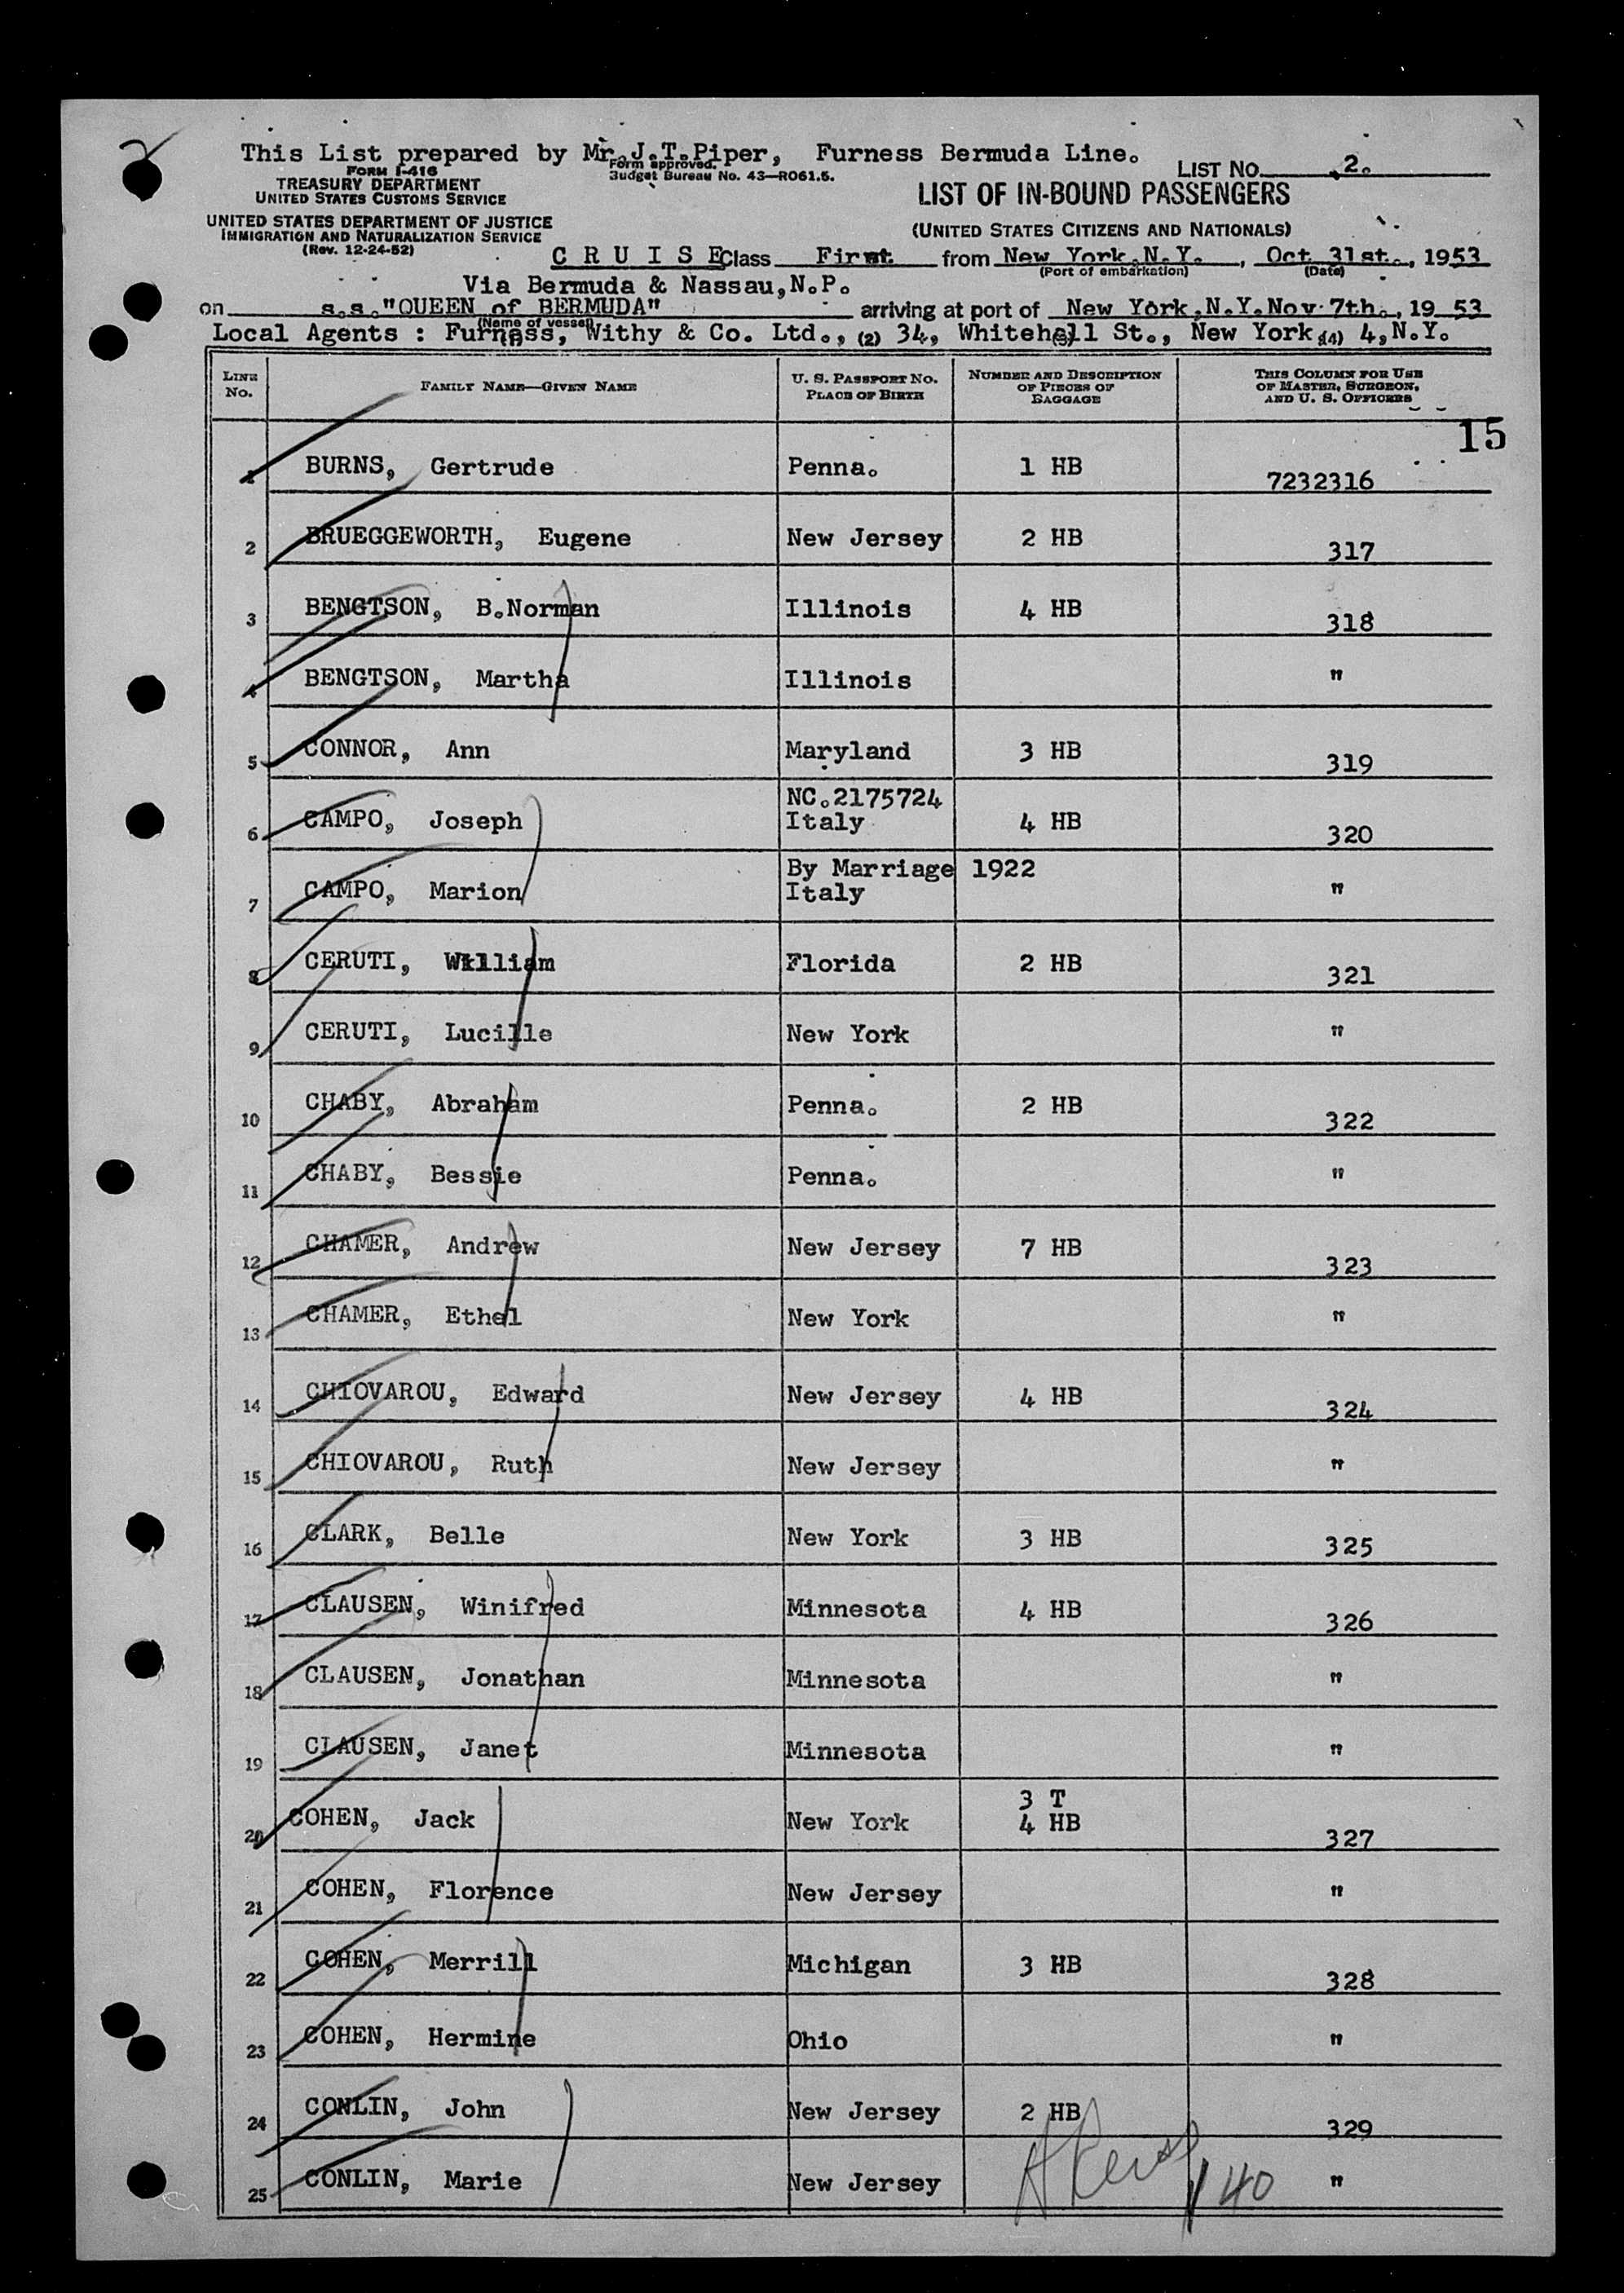 2
This List prepared by Mr. J.T.Piper, Furness Bermuda Line.
Form approved.
Budget Bureau No. 43—RO61.5.
LIST No. 2.
FORM I-416
TREASURY DEPARTMENT
UNITED STATES CUSTOMS SERVICE
LIST OF IN-BOUND PASSENGERS
UNITED STATES DEPARTMENT OF JUSTICE
IMMIGRATION AND NATURALIZATION SERVICE
(Rev. 12-24-52)
(UNITED STATES CITIZENS AND NATIONALS)
C R U I S E Class First from New York,N.Y. , Oct 31st. , 1953
(Port of embarkation) (Date)
Via Bermuda & Nassau,N.P.
on s.s."QUEEN of BERMUDA" arriving at port of New York,N.Y.Nov 7th. , 19 53
(Name of vessel)
Local Agents : Furness, Withy & Co. Ltd., (2) 34, Whitehall St., New York (4) 4,N.Y.
LINE No. FAMILY NAME—GIVEN NAME U. S. PASSPORT NO. PLACE OF BIRTH NUMBER AND DESCRIPTION OF PIECES OF BAGGAGE THIS COLUMN FOR USE OF MASTER, SURGEON, AND U. S. OFFICERS
15
1 BURNS, Gertrude Penna. 1 HB 7232316
2 BRUEGGEWORTH, Eugene New Jersey 2 HB 317
3 BENGTSON, B.Norman Illinois 4 HB 318
4 BENGTSON, Martha Illinois "
5 CONNOR, Ann Maryland 3 HB 319
NC.2175724
6 CAMPO, Joseph Italy 4 HB 320
By Marriage 1922
7 CAMPO, Marion Italy "
8 CERUTI, William Florida 2 HB 321
9 CERUTI, Lucille New York "
10 CHABY, Abraham Penna. 2 HB 322
11 CHABY, Bessie Penna. "
12 CHAMER, Andrew New Jersey 7 HB 323
13 CHAMER, Ethel New York "
14 CHIOVAROU, Edward New Jersey 4 HB 324
15 CHIOVAROU, Ruth New Jersey "
16 CLARK, Belle New York 3 HB 325
17 CLAUSEN, Winifred Minnesota 4 HB 326
18 CLAUSEN, Jonathan Minnesota "
19 CLAUSEN, Janet Minnesota "
3 T
20 COHEN, Jack New York 4 HB 327
21 COHEN, Florence New Jersey "
22 COHEN, Merrill Michigan 3 HB 328
23 COHEN, Hermine Ohio "
24 CONLIN, John New Jersey 2 HB 329
25 CONLIN, Marie New Jersey "
40